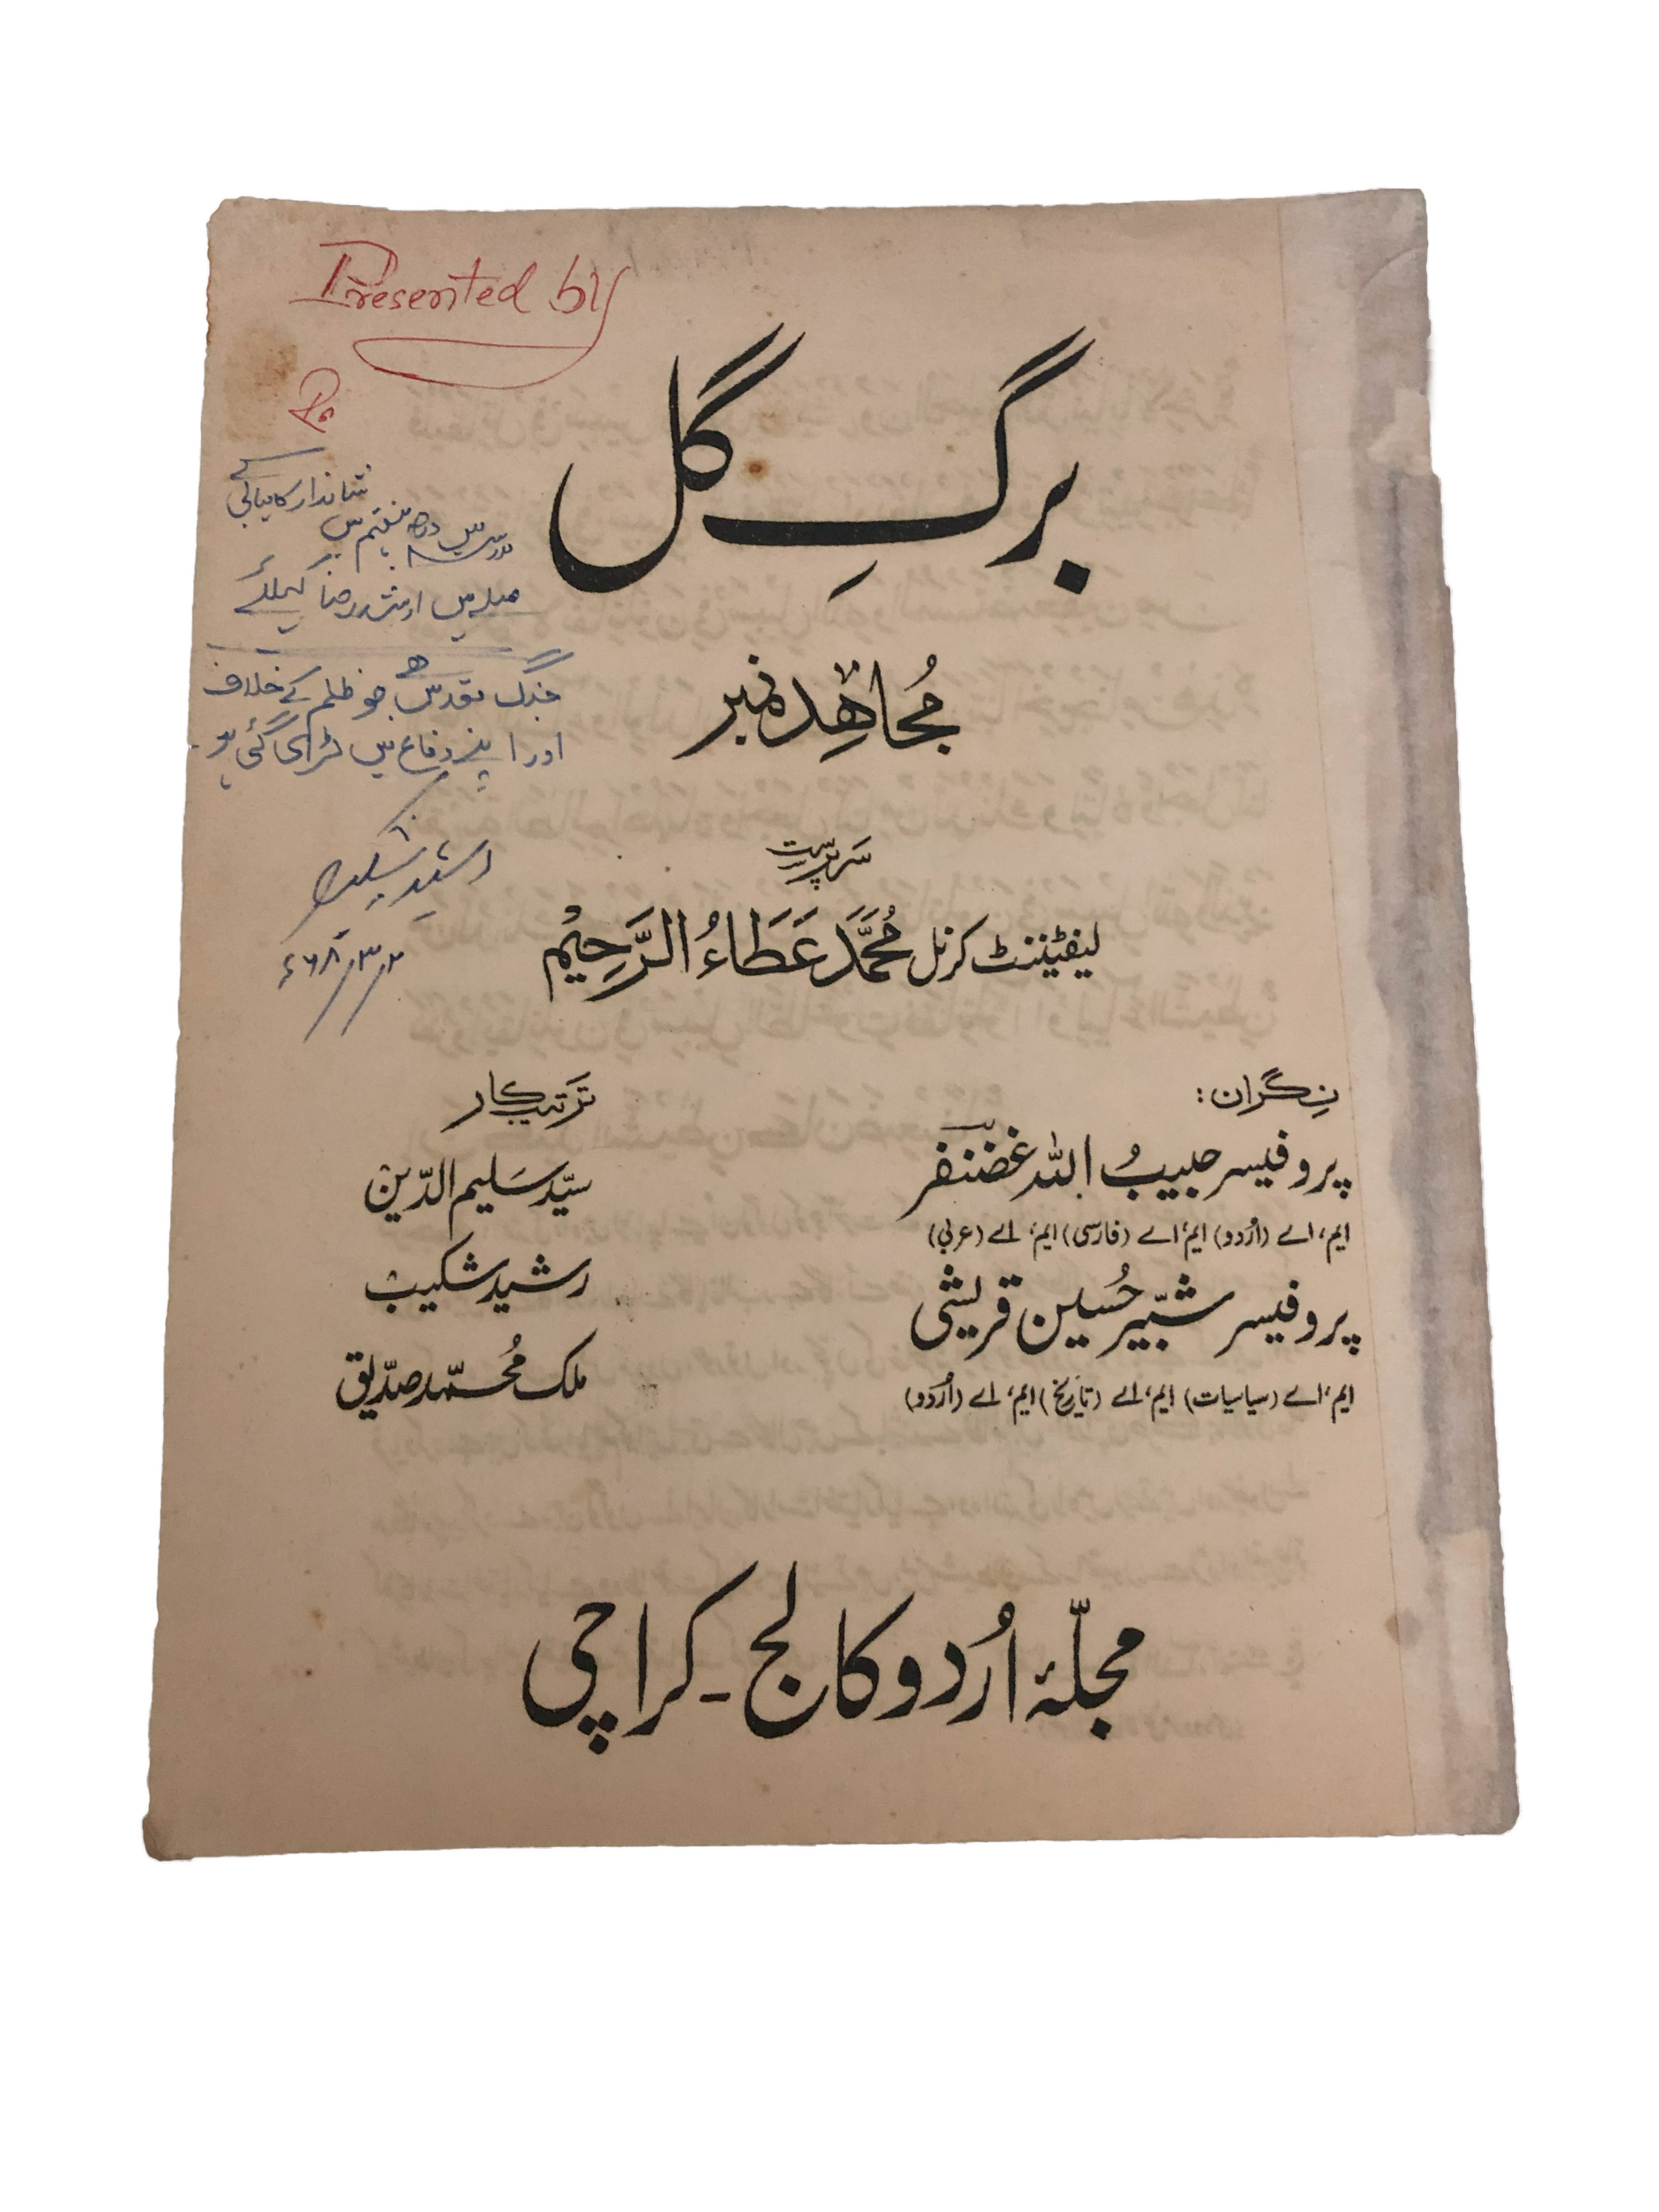 Presented by
برگِ گل
شاندار کامیابی کے
درجہ ہفتم میں
صلہ میں ارشد رضا کیلئے
مُجاھِد نمبر
جنگ مقدس ھے جو ظلم کے خلاف
اور اپنے دفاع میں لڑی گئی ہو۔
سَرپرست
رشید شکیب
لیفٹیننٹ کرنل مُحَمَّد عَطَاءُ الرَّحِیْم
۲/۳/۶۸ء
نِگران:
پروفیسر حبیبُ اللہ غضنفر
ایم، اے (اُردو) ایم، اے (فارسی) ایم، اے (عربی)
پروفیسر شبّیر حُسین قریشی
ایم، اے (سیاسیات) ایم، اے (تاریخ) ایم، اے (اُردو)
ترتیب کار
سیّد سَلیم الدّین
رشید شکیب
ملک مُحمّد صدّیق
مجلّۂ اُردو کالج - کراچی